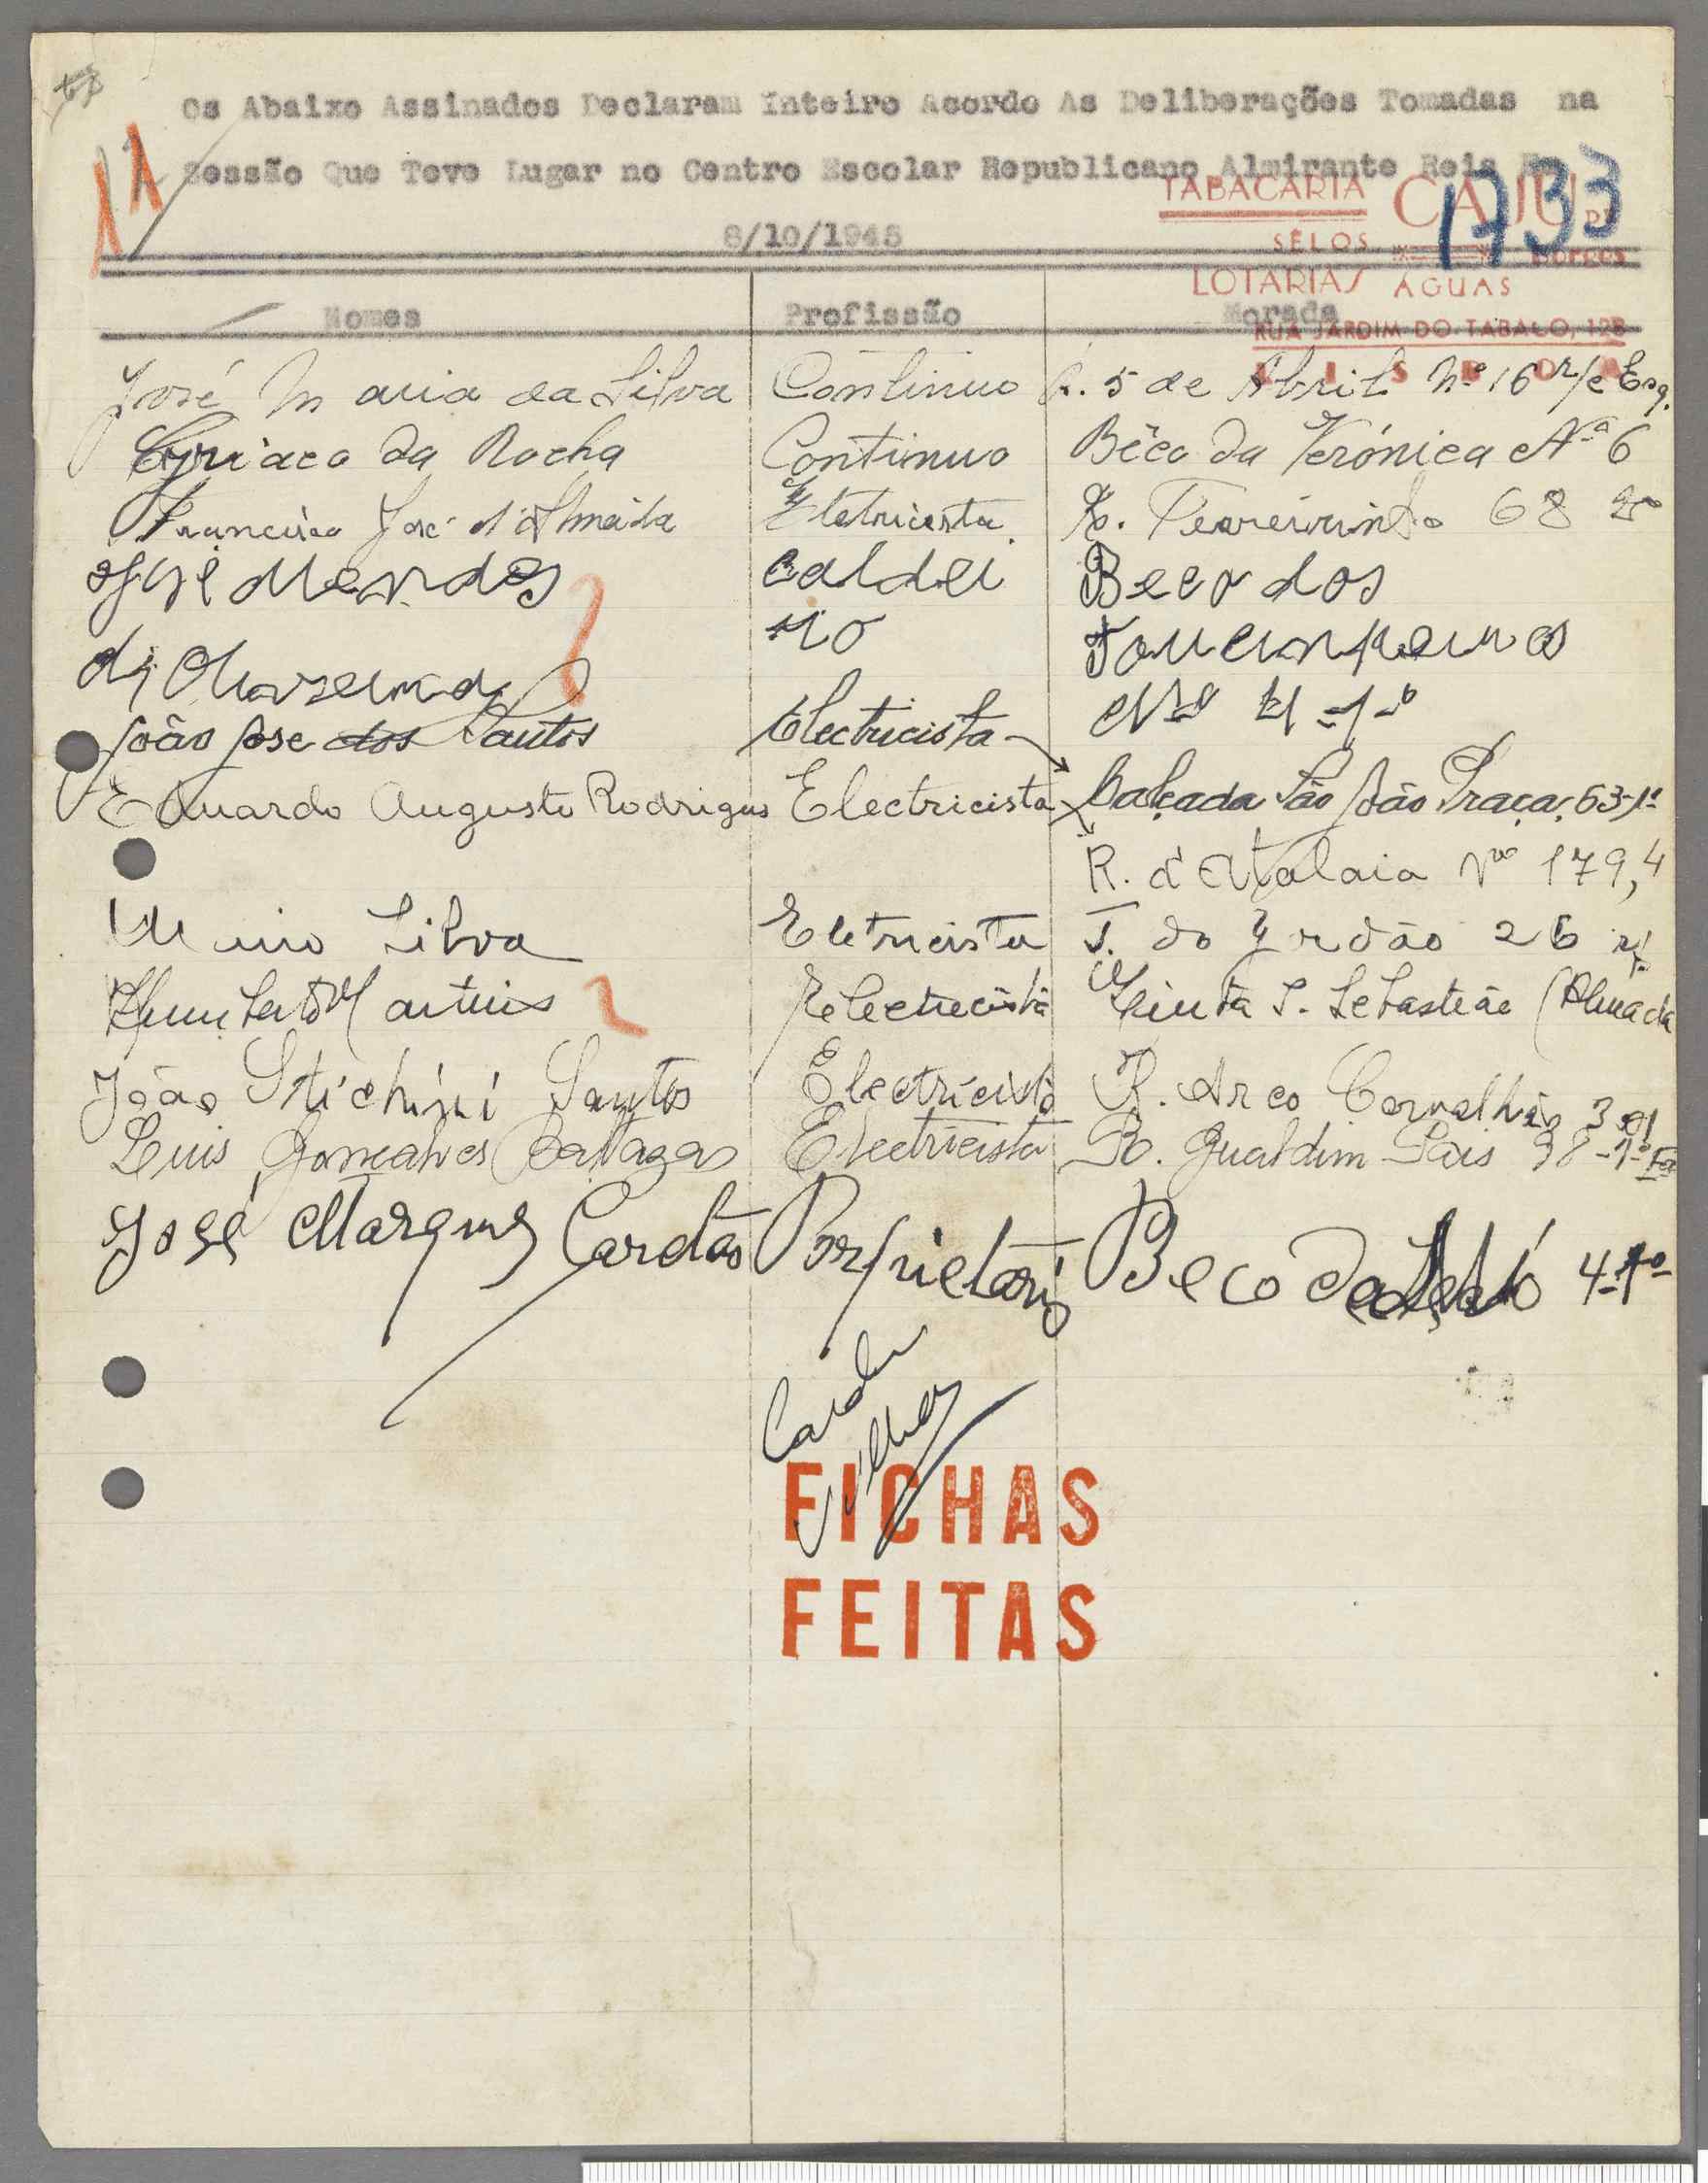 Os Abaixo Assinados Declaram Inteiro Acordo As Deliberações Tomadas na
Sessão Que Teve Lugar no Centro Escolar Republicano Almirante Reis
8/10/1945
11
1733
TABACARIA CAJU
SÊLOS
LOTARIAS ÁGUAS
RUA JARDIM DO TABACO, 128
LISBOA
Nomes Profissão Morada
José Maria da Silva Continuo R. 5 de Abril Nº 16 r/c Esq.
Cyriaco da Rocha Continuo Bêco da Verónica Nº 6
Francisco José d'Almeida Eletricista R. Terreirinho 68 2º
José Mendes Caldei Beco dos
de Oliveira ro Toucinheiros
Nº 11-1º
João Jose dos Santos Electricista Calçada São João Praça, 63-1º
Eduardo Augusto Rodrigues Electricista R. d'Atalaia Nº 179, 4
Silva Eletricista T. do 26
Humberto Martins Electricista Quinta S. Sebastião (Almada
João Stichini Santos Electricista R. Arco Carvalhão
Luis Gonçalves Baltazar Electricista R. Gualdim Pais 98-1º
José Marques Cardão Porprietario Beco da 4-1º
FICHAS
FEITAS